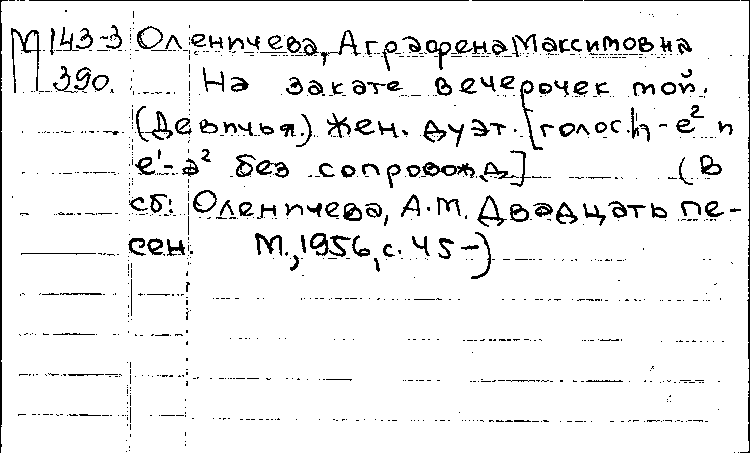 М 143-3 Оленичева, Аграфена Максимовна
390. На закате вечерочек мой.
(Девичья.) Жен. дуэт. [голос. h - e² и
e¹ - a² без сопровожд.] (В
сб: Оленичева, А.М. Двадцать пе-
сен. М., 1956, с. 45-)